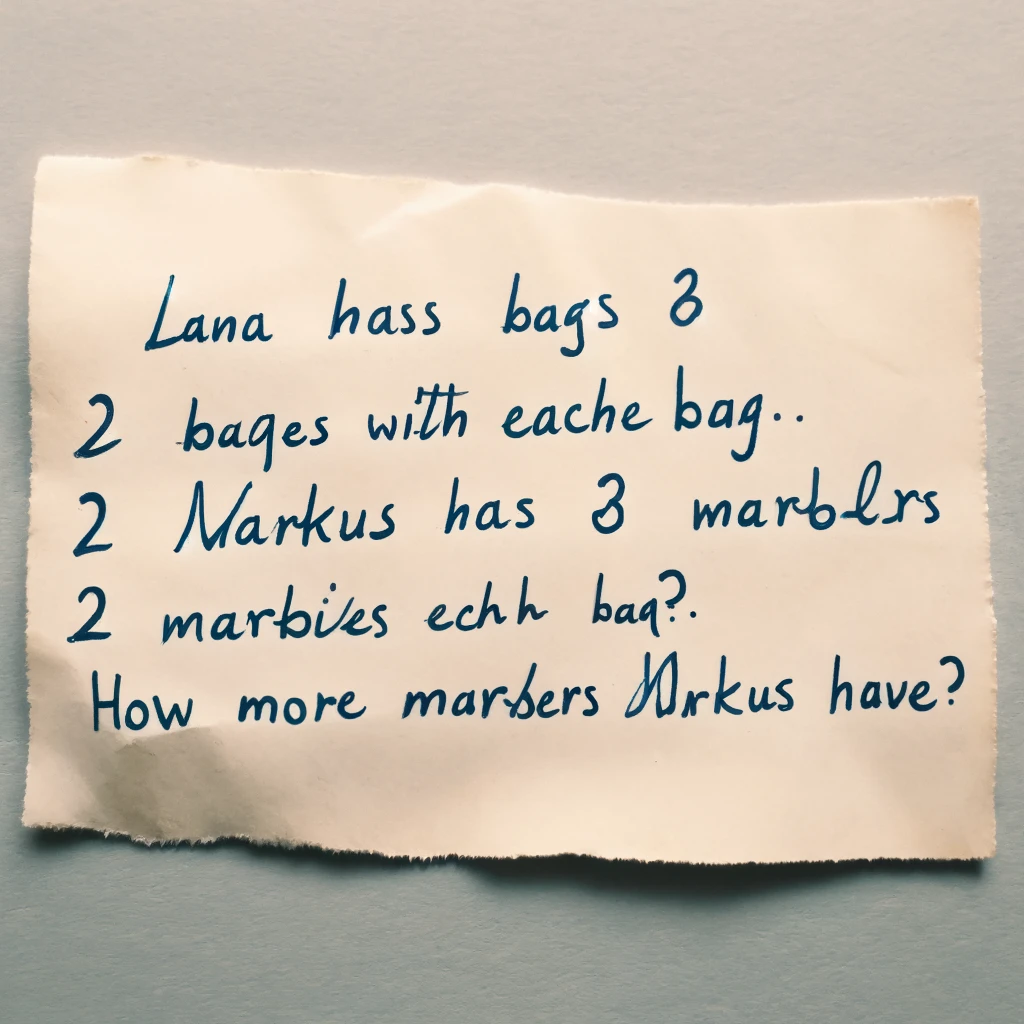 Lana hass bags 3
2 bages with eache bag..
2 Markus has 3 marblrs
2 marbiles echh bag?.
How more marbers Markus have?